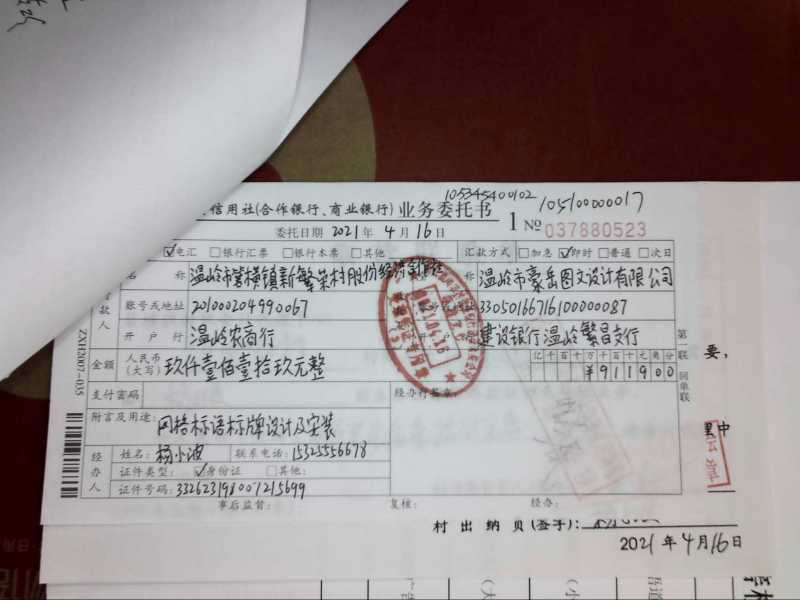 105345400102
105100000017
信用社(合作银行、商业银行) 业务委托书 1 No 037880523
委托日期 2021 年 4 月 16 日
电汇 银行汇票 银行本票 其他 汇款方式 加急 即时 普通 次日
称 温岭市箬横镇新繁荣村股份经济合作社 称 温岭市豪岳图文设计有限公司
款 账号或地址 201000204990067 33050166716100000087
人 开户行 温岭农商行 建设银行温岭繁昌支行
金额 人民币(大写) 玖仟壹佰壹拾玖元整 亿千百十万千百十元角分
¥911900
支付密码 经办行签章:
附言及用途:
网格标语标牌设计及安装
经办人 姓名: 杨小波 联系电话: 15325556678
证件类型: 身份证 其他:
证件号码: 332623198007215699
事后监督: 复核: 经办:
第 联 回单联
ZXH2007-035
2021.04.16
要,
里中
村出纳员(签字):
2021 年 4 月 16 日